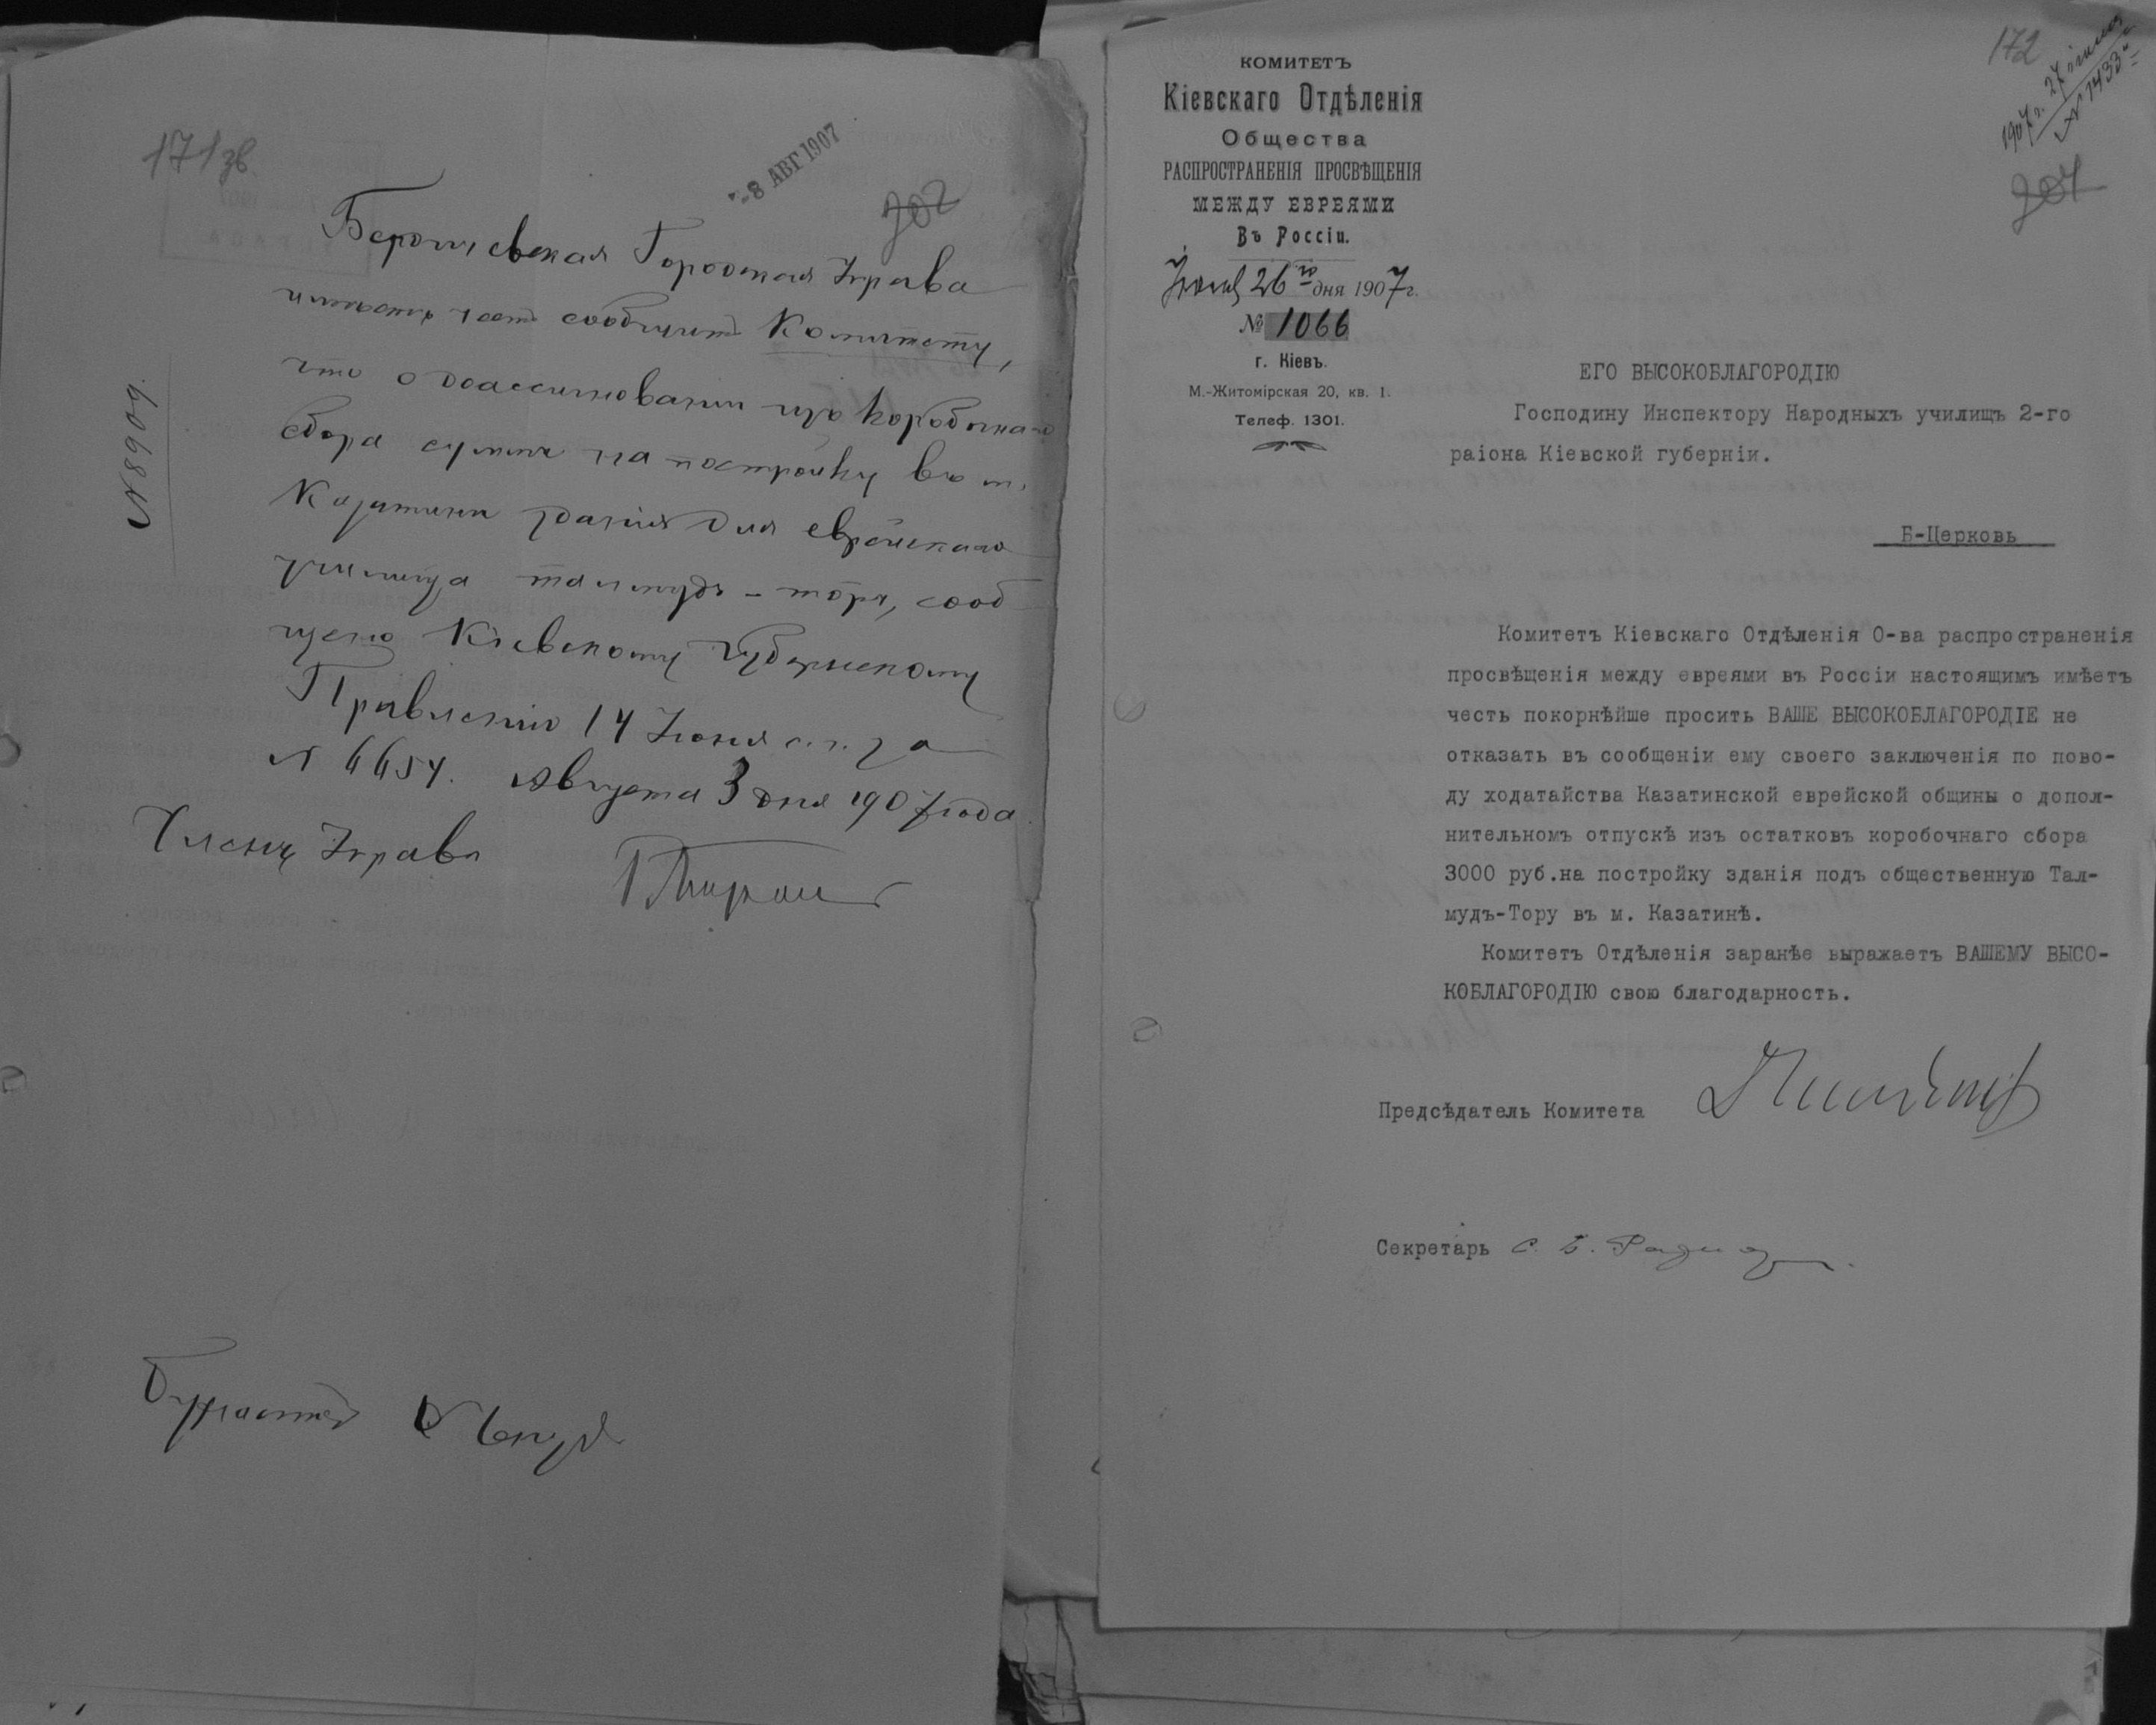 171 зв.
- 8 АВГ 1907
202
№ 8909.
Бердичевская Городская Управа
имѣетъ честь сообщить Комитету,
что о доассигнованіи изъ коробочнаго
сбора суммы на постройку въ м.
Казатинѣ зданія для еврейскаго
училища талмудъ-тора, сооб
щено Кіевскому Губернскому
Правленію 14 Іюня с.г. за
№ 6654. Августа 3 дня 1907 года.
Членъ Управы
172
1907 г. 27
№ 1433
204
КОМИТЕТЪ
Кіевскаго Отдѣленія
Общества
РАСПРОСТРАНЕНІЯ ПРОСВѢЩЕНІЯ
МЕЖДУ ЕВРЕЯМИ
Въ Россіи.
26 го дня 1907 г.
№ 1066
г. Кіевъ.
М.-Житомірская 20, кв. 1.
Телеф. 1301.
ЕГО ВЫСОКОБЛАГОРОДІЮ
Господину Инспектору Народныхъ училищъ 2-го
раіона Кіевской губерніи.
Б-Церковь
Комитетъ Кіевскаго Отдѣленія О-ва распространенія
просвѣщенія между евреями въ Россіи настоящимъ имѣетъ
честь покорнѣйше просить ВАШЕ ВЫСОКОБЛАГОРОДІЕ не
отказать въ сообщеніи ему своего заключенія по пово-
ду ходатайства Казатинской еврейской общины о допол-
нительномъ отпускѣ изъ остатковъ коробочнаго сбора
3000 руб.на постройку зданія подъ общественную Тал-
мудъ-Тору въ м. Казатинѣ.
Комитетъ Отдѣленія заранѣе выражаетъ ВАШЕМУ ВЫСО-
КОБЛАГОРОДІЮ свою благодарность.
Предсѣдатель Комитета
Секретарь С. Б.